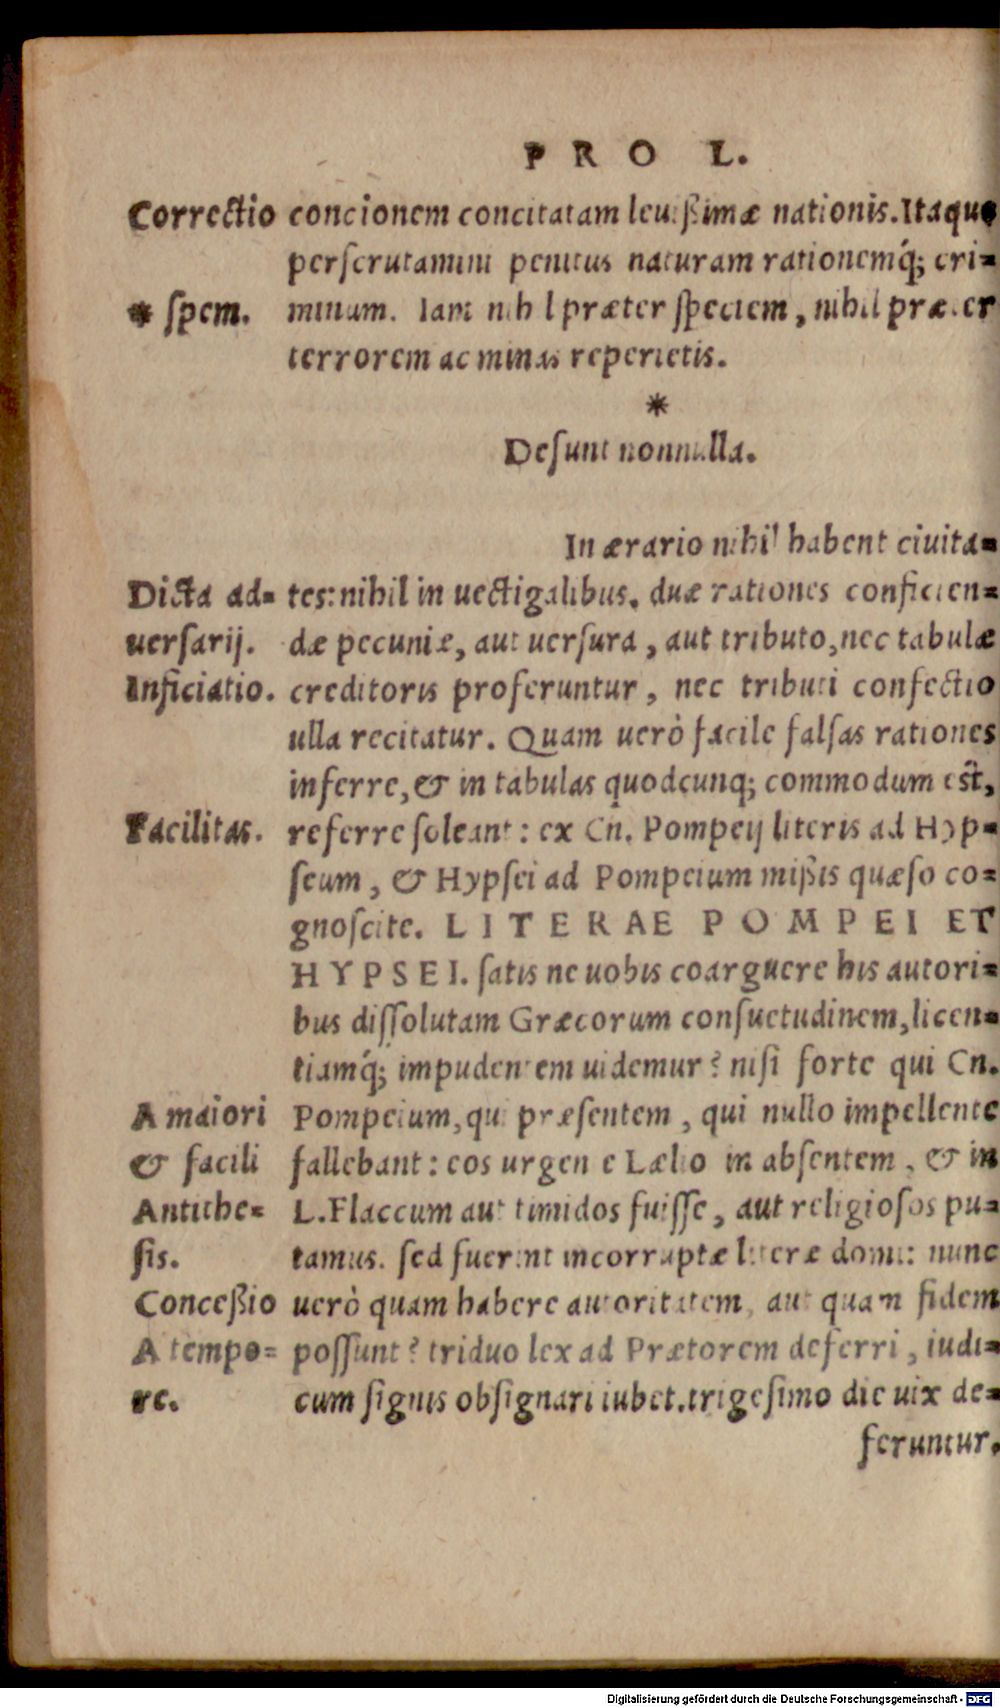 PRO L.
Correctio concionem concitatam leuißimæ nationis. Itaque
perscrutamini penitus naturam rationemq́; cri=
* spem. minum. Iam nihil præter speciem, nihil præter
terrorem ac minas reperietis.
*
Desunt nonnulla.
In ærario nihil habent ciuita=
Dicta ad= tes: nihil in uectigalibus. duæ rationes conficien=
uersarij. dæ pecuniæ, aut uersura, aut tributo, nec tabulæ
Inficiatio. creditoris proferuntur, nec tributi confectio
ulla recitatur. Quam uerò facile falsas rationes
inferre, & in tabulas quodcunq; commodum est,
Facilitas. referre soleant: ex Cn. Pompeij literis ad Hyp=
seum, & Hypsei ad Pompeium mißis quæso co=
gnoscite. LITERAE POMPEI ET
HYPSEI. satis ne uobis coarguere his autori=
bus dissolutam Græcorum consuetudinem, licen=
tiamq́; impudentem uidemur? nisi forte qui Cn.
A maiori Pompeium, qui præsentem, qui nullo impellente
& facili fallebant: eos urgente Lælio in absentem, & in
Antithe= L. Flaccum aut timidos fuisse, aut religiosos pu=
sis. tamus. sed fuerint incorruptæ literæ domi: nunc
Conceßio uerò quam habere autoritatem, aut quam fidem
A tempo= possunt? triduo lex ad Prætorem deferri, iudi=
re. cum signis obsignari iubet. trigesimo die uix de=
feruntur.
Digitalisierung gefördert durch die Deutsche Forschungsgemeinschaft - DFG